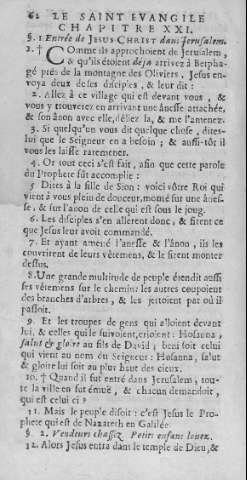 62 LE SAINT EVANGILE
CHAPITRE XXI.
§. 1 Entrée de JESUS CHRIST dans Jerusalem.
2. † COmme ils approchoient de Jerusalem,
& qu'ils étoient déja arrivez à Bethpha-
gé prés de la montagne des Oliviers, Jesus en-
voya deux de ses disciples, & leur dit :
2. Allez à ce village qui est devant vous, &
vous y trouverez en arrivant une ânesse attachée,
& son ânon avec elle, déliez la, & me l'amenez.
3. Si quelqu'un vous dit quelque chose, dites-
lui que le Seigneur en a besoin ; & aussi-tôt il
vous les laisse rammener.
4. Or tout ceci s'est fait, afin que cette parole
du Prophete fût accomplie :
5 Dites à la fille de Sion : voici vôtre Roi qui
vient à vous plein de douceur, monté sur une ânes-
se, & sur l'ânon de celle qui est sous le joug.
6. Les disciples s'en allerent donc, & firent ce
que Jesus leur avoit commandé.
7. Et ayant amené l'anesse & l'ânon, ils les
couvrirent de leurs vêtemens, & le firent monter
dessus.
8. Une grande multitude de peuple étendit aussi
ses vêtemens sur le chemin: les autres coupoient
des branches d'arbres, & les jettoient par où il
passoit.
9. Et les troupes de gens qui alloient devant
lui, & celles qui le suivoient, crioient : Hosanna,
salut & gloire au fils de David ; beni soit celui
qui vient au nom du Seigneur : Hosanna, salut
& gloire lui soit au plus haut des cieux.
10. † Quand il fut entré dans Jerusalem, tou-
te la ville en fut émuë, & chacun demandoit,
qui est celui-ci ?
11. Mais le peuple disoit : c'est Jesus le Pro-
phete qui est de Nazareth en Galilée.
§. 2. Vendeurs chassez. Petits enfans louez.
12. Alors Jesus entra dans le temple de Dieu, &